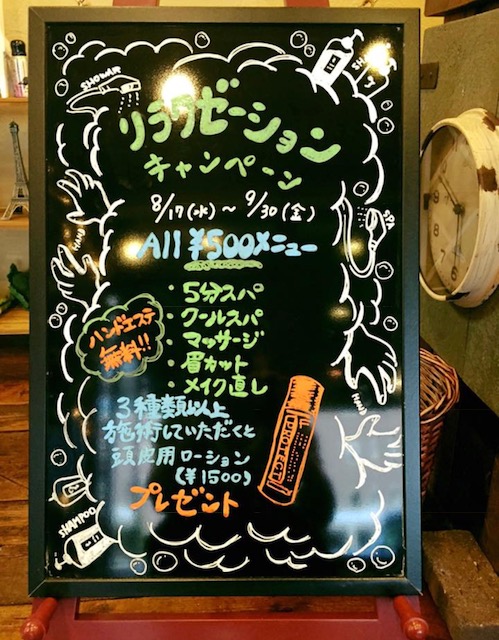 SHOWER
リラクゼーション
キャンペーン
8/17(水)～9/30(金)
All ¥500メニュー
・5分スパ
・クールスパ
・マッサージ
・眉カット
・メイク直し
ハンドエステ
無料!!
3種類以上
施術していただくと
頭皮用ローション
(¥1500)
プレゼント
PROTECT
HAND
SPA
HAND
SHAMPOO